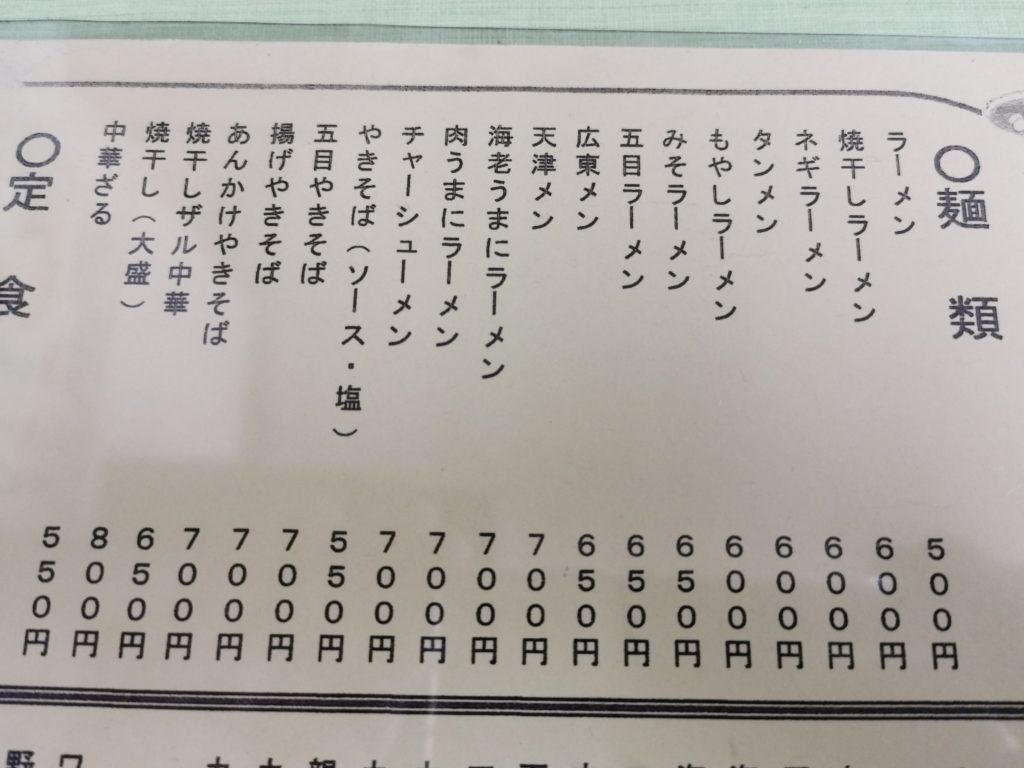 〇麺類
ラーメン 500円
焼干しラーメン 600円
ネギラーメン 600円
タンメン 600円
もやしラーメン 600円
みそラーメン 650円
五目ラーメン 650円
広東メン 650円
天津メン 700円
海老うまにラーメン 700円
肉うまにラーメン 700円
チャーシューメン 700円
やきそば（ソース・塩） 550円
五目やきそば 700円
揚げやきそば 700円
あんかけやきそば 700円
焼干しザル中華 650円
焼干し（大盛） 800円
中華ざる 550円
〇定食